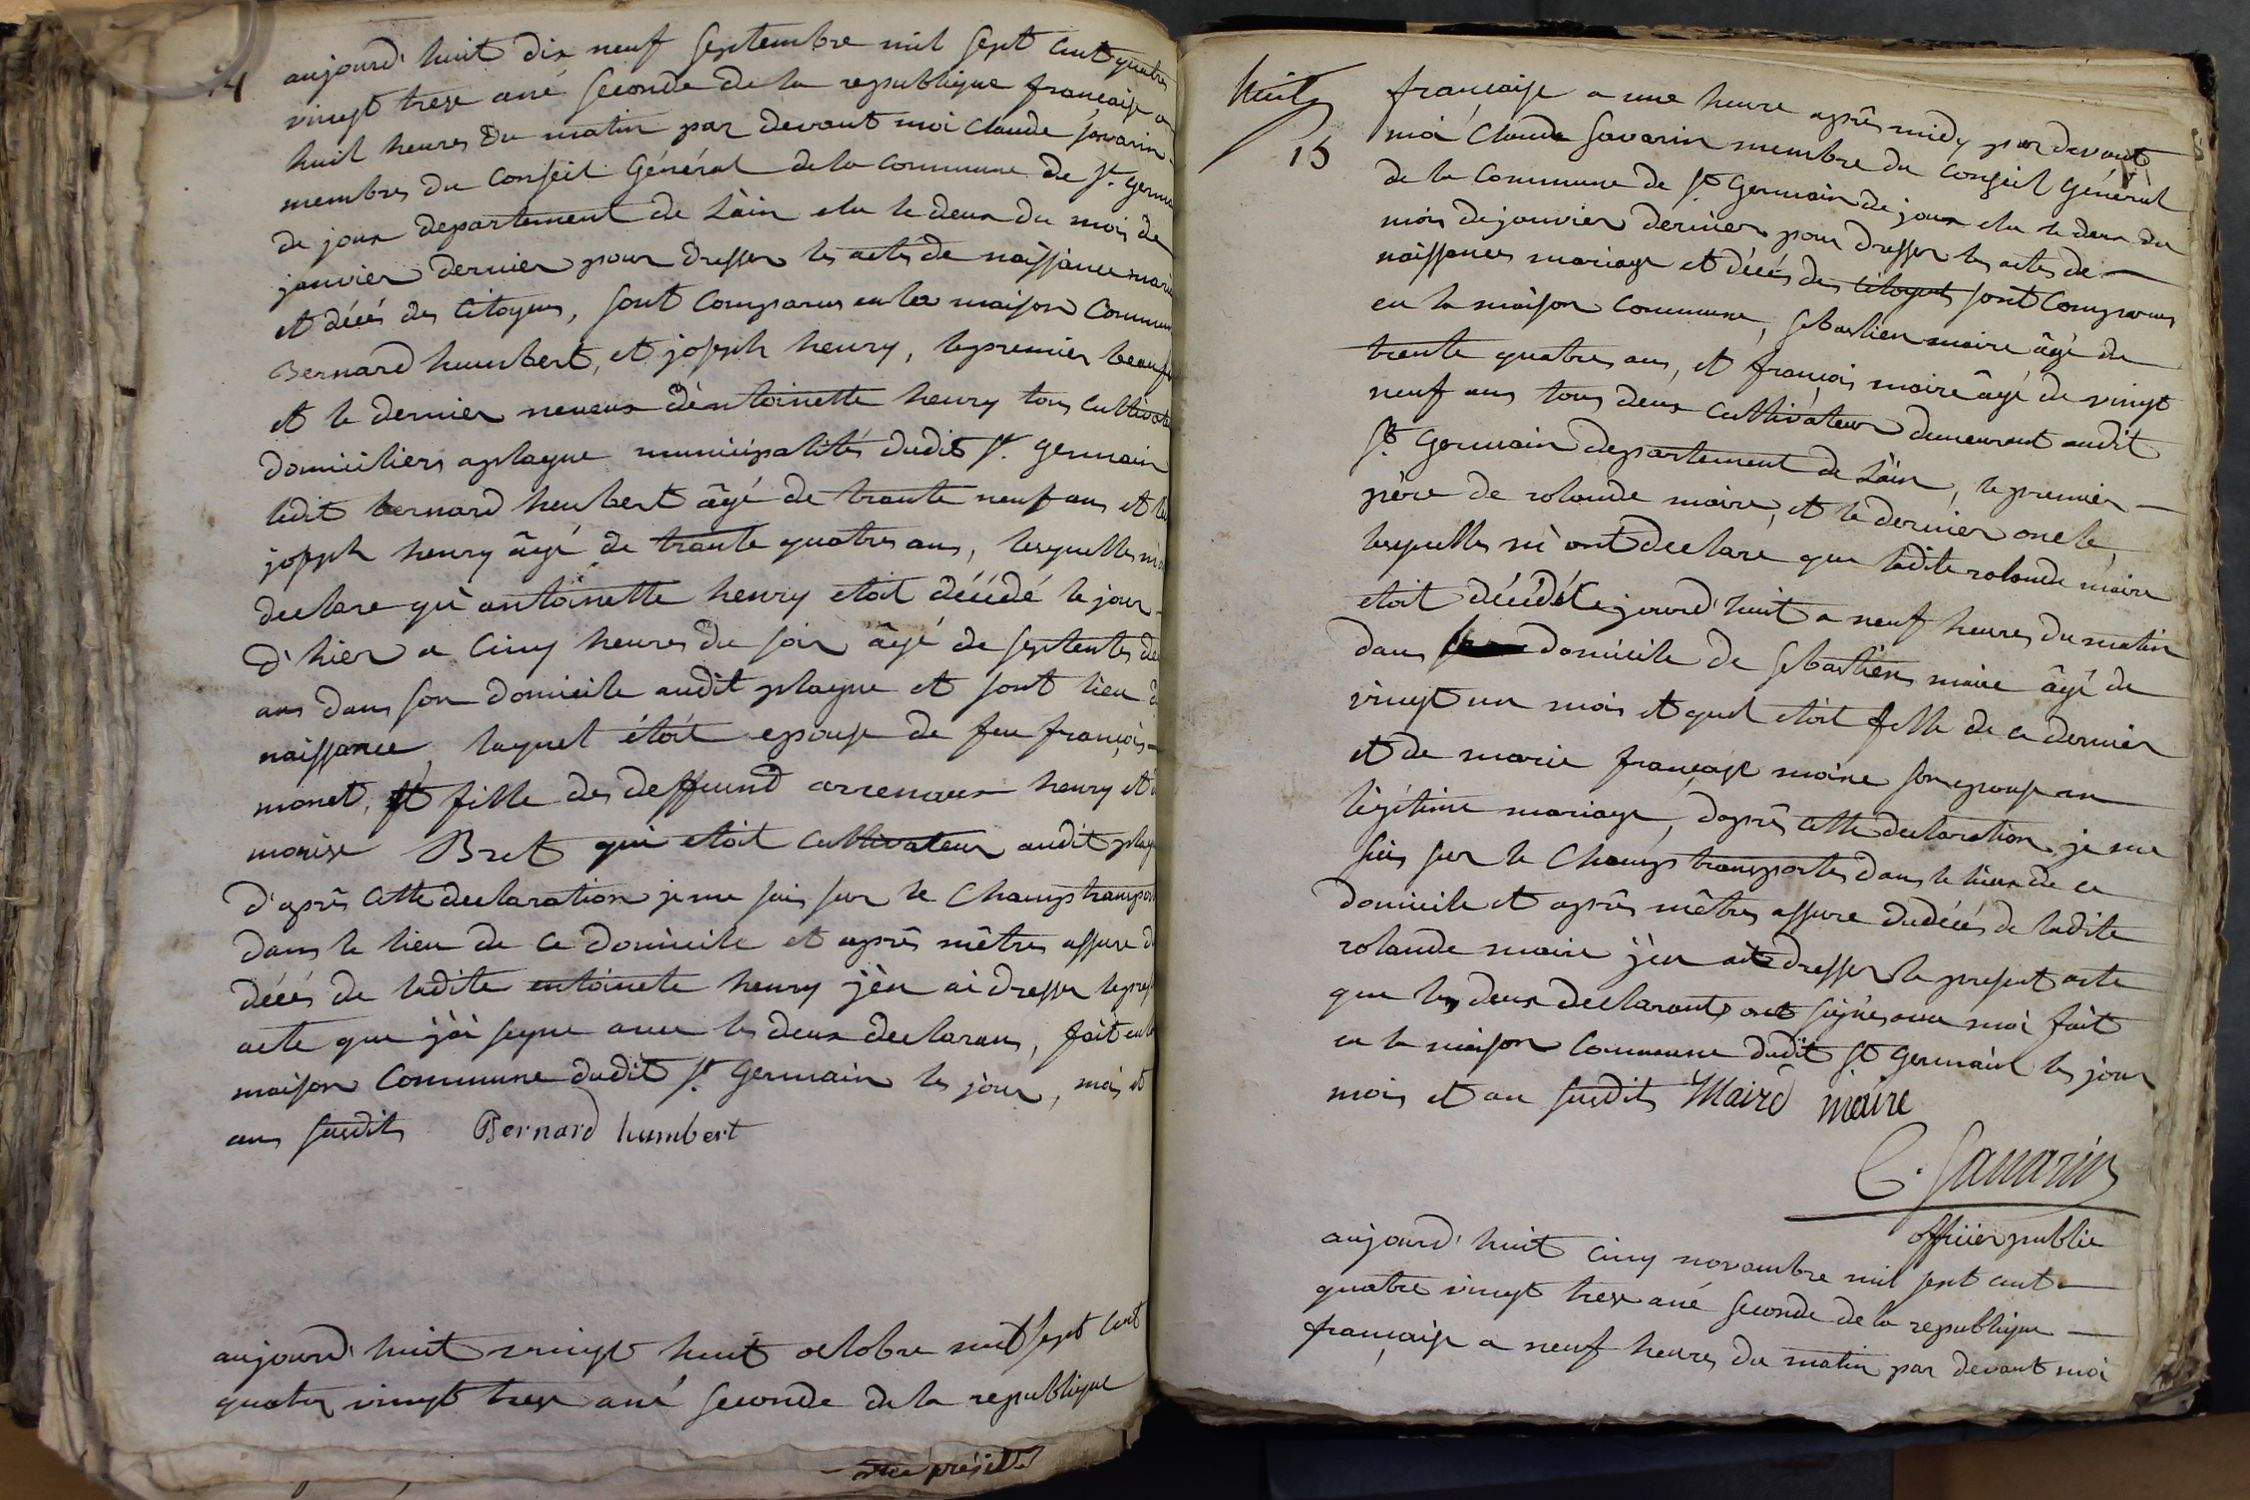 14
aujourd'huit dix neuf septembre mil sept cent quatre
vingt treze ané seconde de la republique françaisse a
huil heures du matin par devant moi Claude savarin
membres du Conseil Général de la Commune de St. Germ
de joux departement de L'ain elu le deux du mois de
janvier dernier pour dresser les actes de naissance mari
et décés des Citoyens, sont Comparus en la maison Commun
Bernard humbert, et joseph henry, le premier beauf
et le dernier neveux d'éntoinette henry tous Cultivat
domiciliers a plagne municipalités dudit St. germain
ledit bernard heubert âgé de trante neuf ans et le
joseph henry âgé de trante quatres ans, lesquelles m'o
declare qu'antoinette henry etoit décédé le jour
d'hier a Cinq heures du soir âgé de septentes de
ans dans son domicile audit plagne et sont lieu d
naissance, laquel étoit epouse de feu françois
monet, et fille des deffund henry et
morise Bret qui etoit Cultivateur audit plag
d'après Cette declaration je me suis sur le Champs transpor
dans le lieu de ce domicile et après mêtres assure d
décés de ladite entoinete henry j'én ai dresser le pres
acte que j'ai segne avec les deux declarans, fait en la
maison Commune dudit St. Germain les jour, mois et
ans susdits Bernard humbert
aujourd'huit vingt huit octobre mil sept Cent
quatres vingt treze ané seconde de la republique
huit
15
française a une heure après midy par devant
moi Claude Savarin membre du Conseil Général
de la Commune de St Germain de joux elu le deux du
mois de janvier dernier pour dresser les actes de
naissances mariage et décés des Citoyens sont Comparus
en la maison Commune, sebastien maire âgé de
trente quatres ans, et françois maire âgé de vingt
neuf ans tous deux Cultivateur demeurant audit
St. Germain departement de L'ain, le premier
père de rolande maire, et le dernier oncle,
lesquelles m'ont declaré que ladite rolande maire
etoit décédé Cejourd'huit a neuf heures du matin
dans domicile de sebastien maire âgé de
vingt un mois et quel etoit fille de ce dernier
et de marie françoise moine son epouse en
légitime mariage, daprês Cette declaration je me
suis sur le Champs transportes dans le lieux de ce
domicile et aprês mêtres assure dudécés de ladite
rolande maire j'en ait dresser le present acte
que les deux declarants ont signés avec moi fait
en la maison Commune dudit St Germain les jour
mois et an susdits Maire maire
C. Savarin
officier public
aujourd'huit Cinq novambre mil sept cent
quatre vingt treze ané seconde de la republique
française a neuf heures du matin par devant moi